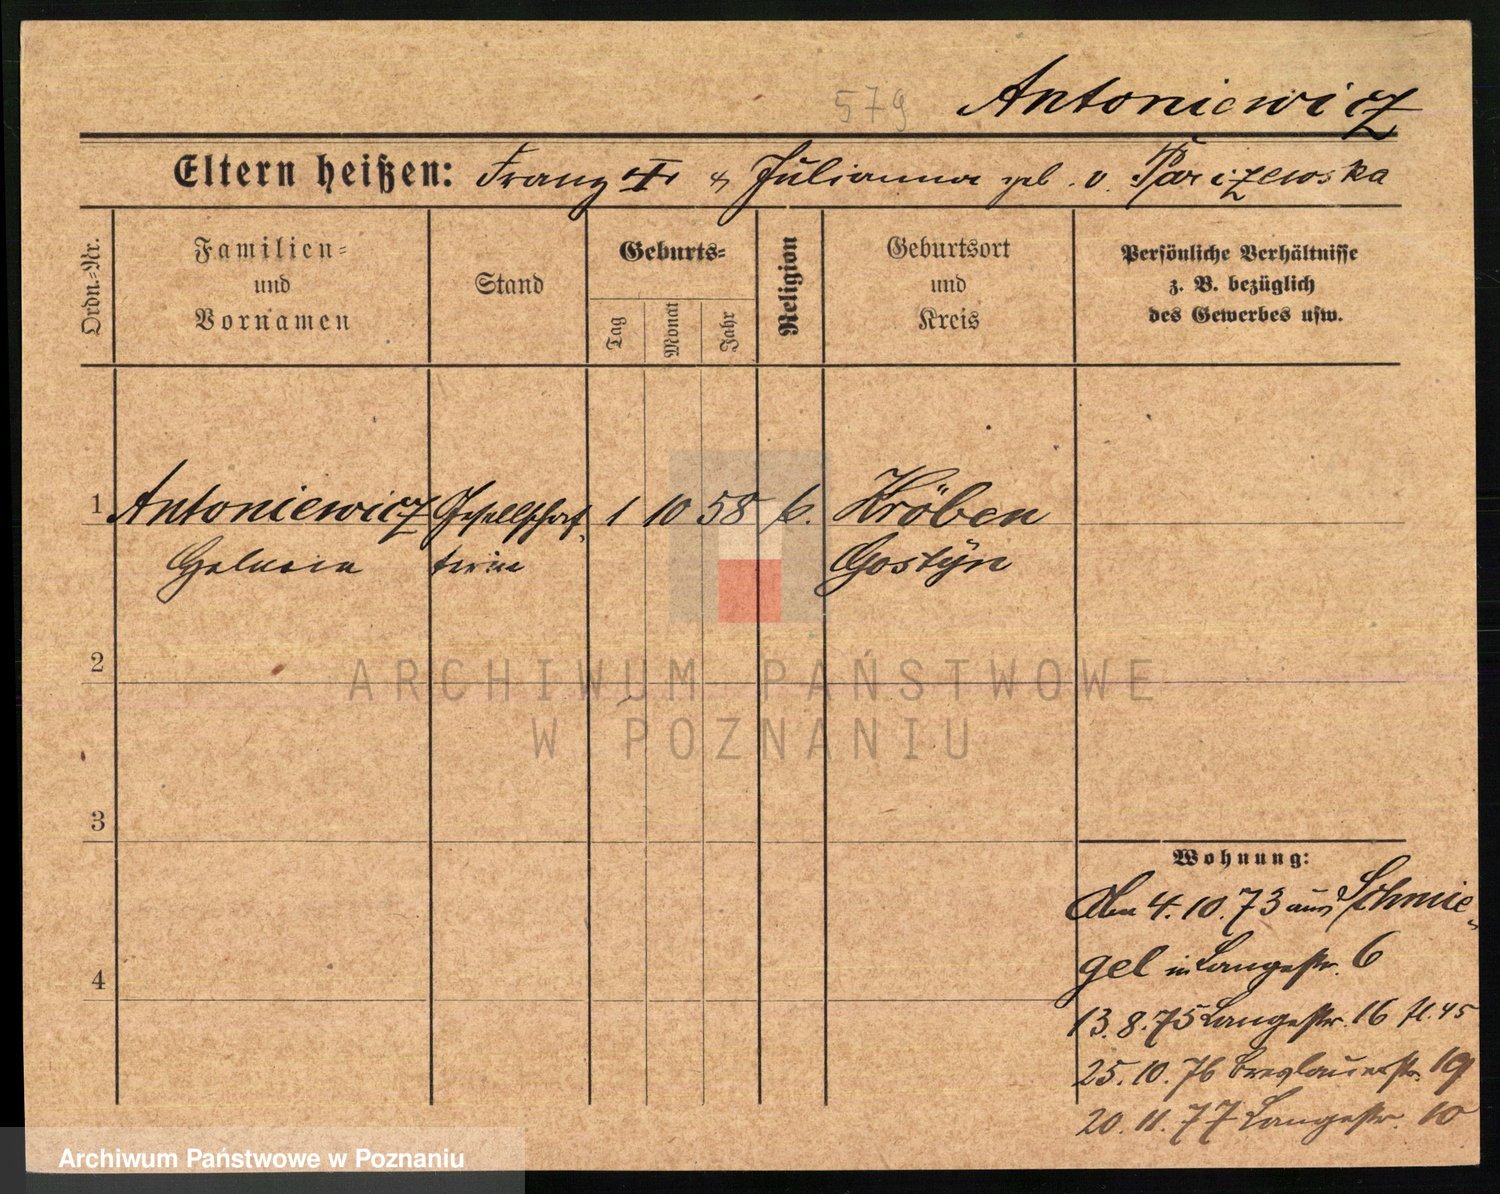 579
Antoniewicz
Eltern heißen: Franz & Julianna geb. v. Parczewska
Ordn.-Nr.
Familien-
und
Vornamen
Stand
Geburts-
Tag
Monat
Jahr
Religion
Geburtsort
und
Kreis
Persönliche Verhältnisse
z. B. bezüglich
des Gewerbes usw.
1 Antoniewicz Gesellschaf- 1 10 58 k. Kröben
Helena terin Gostyn
2
3
4
ARCHIWUM PAŃSTWOWE
W POZNANIU
Wohnung:
Am 4.10.73 aus Schmie-
gel in Langestr. 6
13.8.75 Langestr. 16 45
25.10.76 Breslauerstr. 19
20.11.77 Langestr. 10
Archiwum Państwowe w Poznaniu